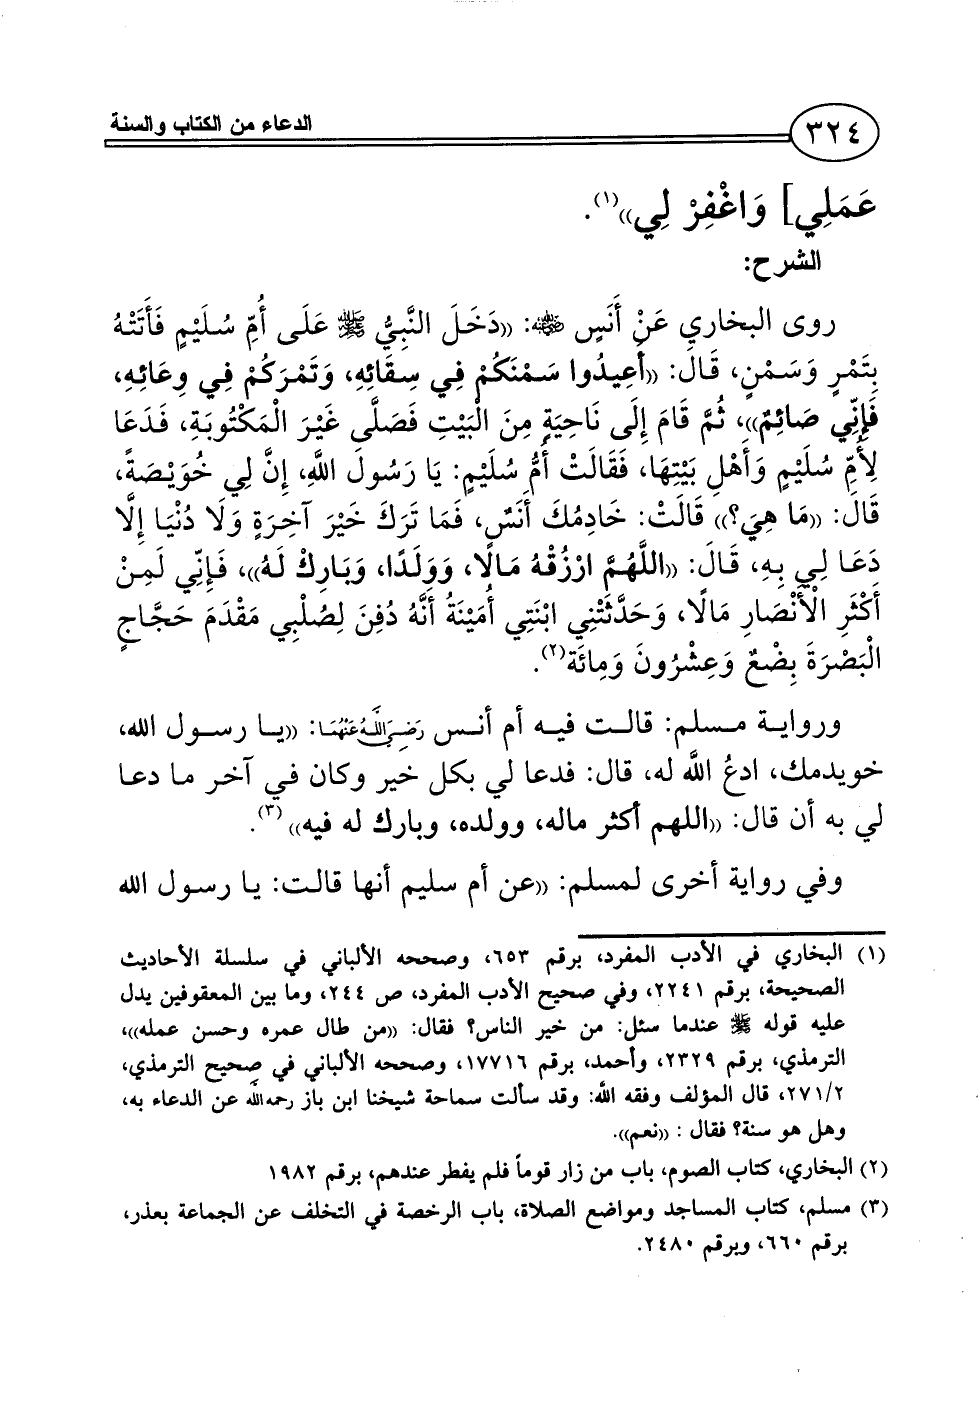 الدعاء من الكتاب والسنة
٣٢٤
عَمَلِي] وَاغْفِرْ لِي»(١).
الشرح:
روى البخاري عَنْ أَنَسٍ ﷺ: «دَخَلَ النَّبِيُّ ﷺ عَلَى أُمِّ سُلَيْمٍ فَأَتَتْهُ
بِتَمْرٍ وَسَمْنٍ، قَالَ: «أَعِيدُوا سَمْنَكُمْ فِي سِقَائِهِ، وَتَمْرَكُمْ فِي وِعَائِهِ،
فَإِنِّي صَائِمٌ»، ثُمَّ قَامَ إِلَى نَاحِيَةٍ مِنَ الْبَيْتِ فَصَلَّى غَيْرَ الْمَكْتُوبَةِ، فَدَعَا
لِأُمِّ سُلَيْمٍ وَأَهْلِ بَيْتِهَا، فَقَالَتْ أُمُّ سُلَيْمٍ: يَا رَسُولَ اللَّهِ، إِنَّ لِي خُوَيْصَةً،
قَالَ: «مَا هِيَ؟» قَالَتْ: خَادِمُكَ أَنَسٌ، فَمَا تَرَكَ خَيْرَ آخِرَةٍ وَلَا دُنْيَا إِلَّا
دَعَا لِي بِهِ، قَالَ: «اللَّهُمَّ ارْزُقْهُ مَالًا، وَوَلَدًا، وَبَارِكْ لَهُ»، فَإِنِّي لَمِنْ
أَكْثَرِ الْأَنْصَارِ مَالًا، وَحَدَّثَتْنِي ابْنَتِي أُمَيْنَةُ أَنَّهُ دُفِنَ لِصُلْبِي مَقْدَمَ حَجَّاجٍ
الْبَصْرَةَ بِضْعٌ وَعِشْرُونَ وَمِائَة(٢).
ورواية مسلم: قالت فيه أم أنس رَضِيَ اللَّهُ عَنْهُمَا: «يا رسول الله،
خويدمك، ادعُ اللَّه له، قال: فدعا لي بكل خير وكان في آخر ما دعا
لي به أن قال: «اللهم أكثر ماله، وولده، وبارك له فيه»(٣).
وفي رواية أخرى لمسلم: «عن أم سليم أنها قالت: يا رسول الله
(١) البخاري في الأدب المفرد، برقم ٦٥٣، وصححه الألباني في سلسلة الأحاديث
الصحيحة، برقم ٢٢٤١، وفي صحيح الأدب المفرد، ص ٢٤٤، وما بين المعقوفين يدل
عليه قوله ﷺ عندما سئل: من خير الناس؟ فقال: «من طال عمره وحسن عمله»،
الترمذي، برقم ٢٣٢٩، وأحمد، برقم ١٧٧١٦، وصححه الألباني في صحيح الترمذي،
٢/ ٢٧١، قال المؤلف وفقه اللَّه: وقد سألت سماحة شيخنا ابن باز رحمه الله عن الدعاء به،
وهل هو سنة؟ فقال : «نعم».
(٢) البخاري، كتاب الصوم، باب من زار قوماً فلم يفطر عندهم، برقم ١٩٨٢
(٣) مسلم، كتاب المساجد ومواضع الصلاة، باب الرخصة في التخلف عن الجماعة بعذر،
برقم ٦٦٠، وبرقم ٢٤٨٠.